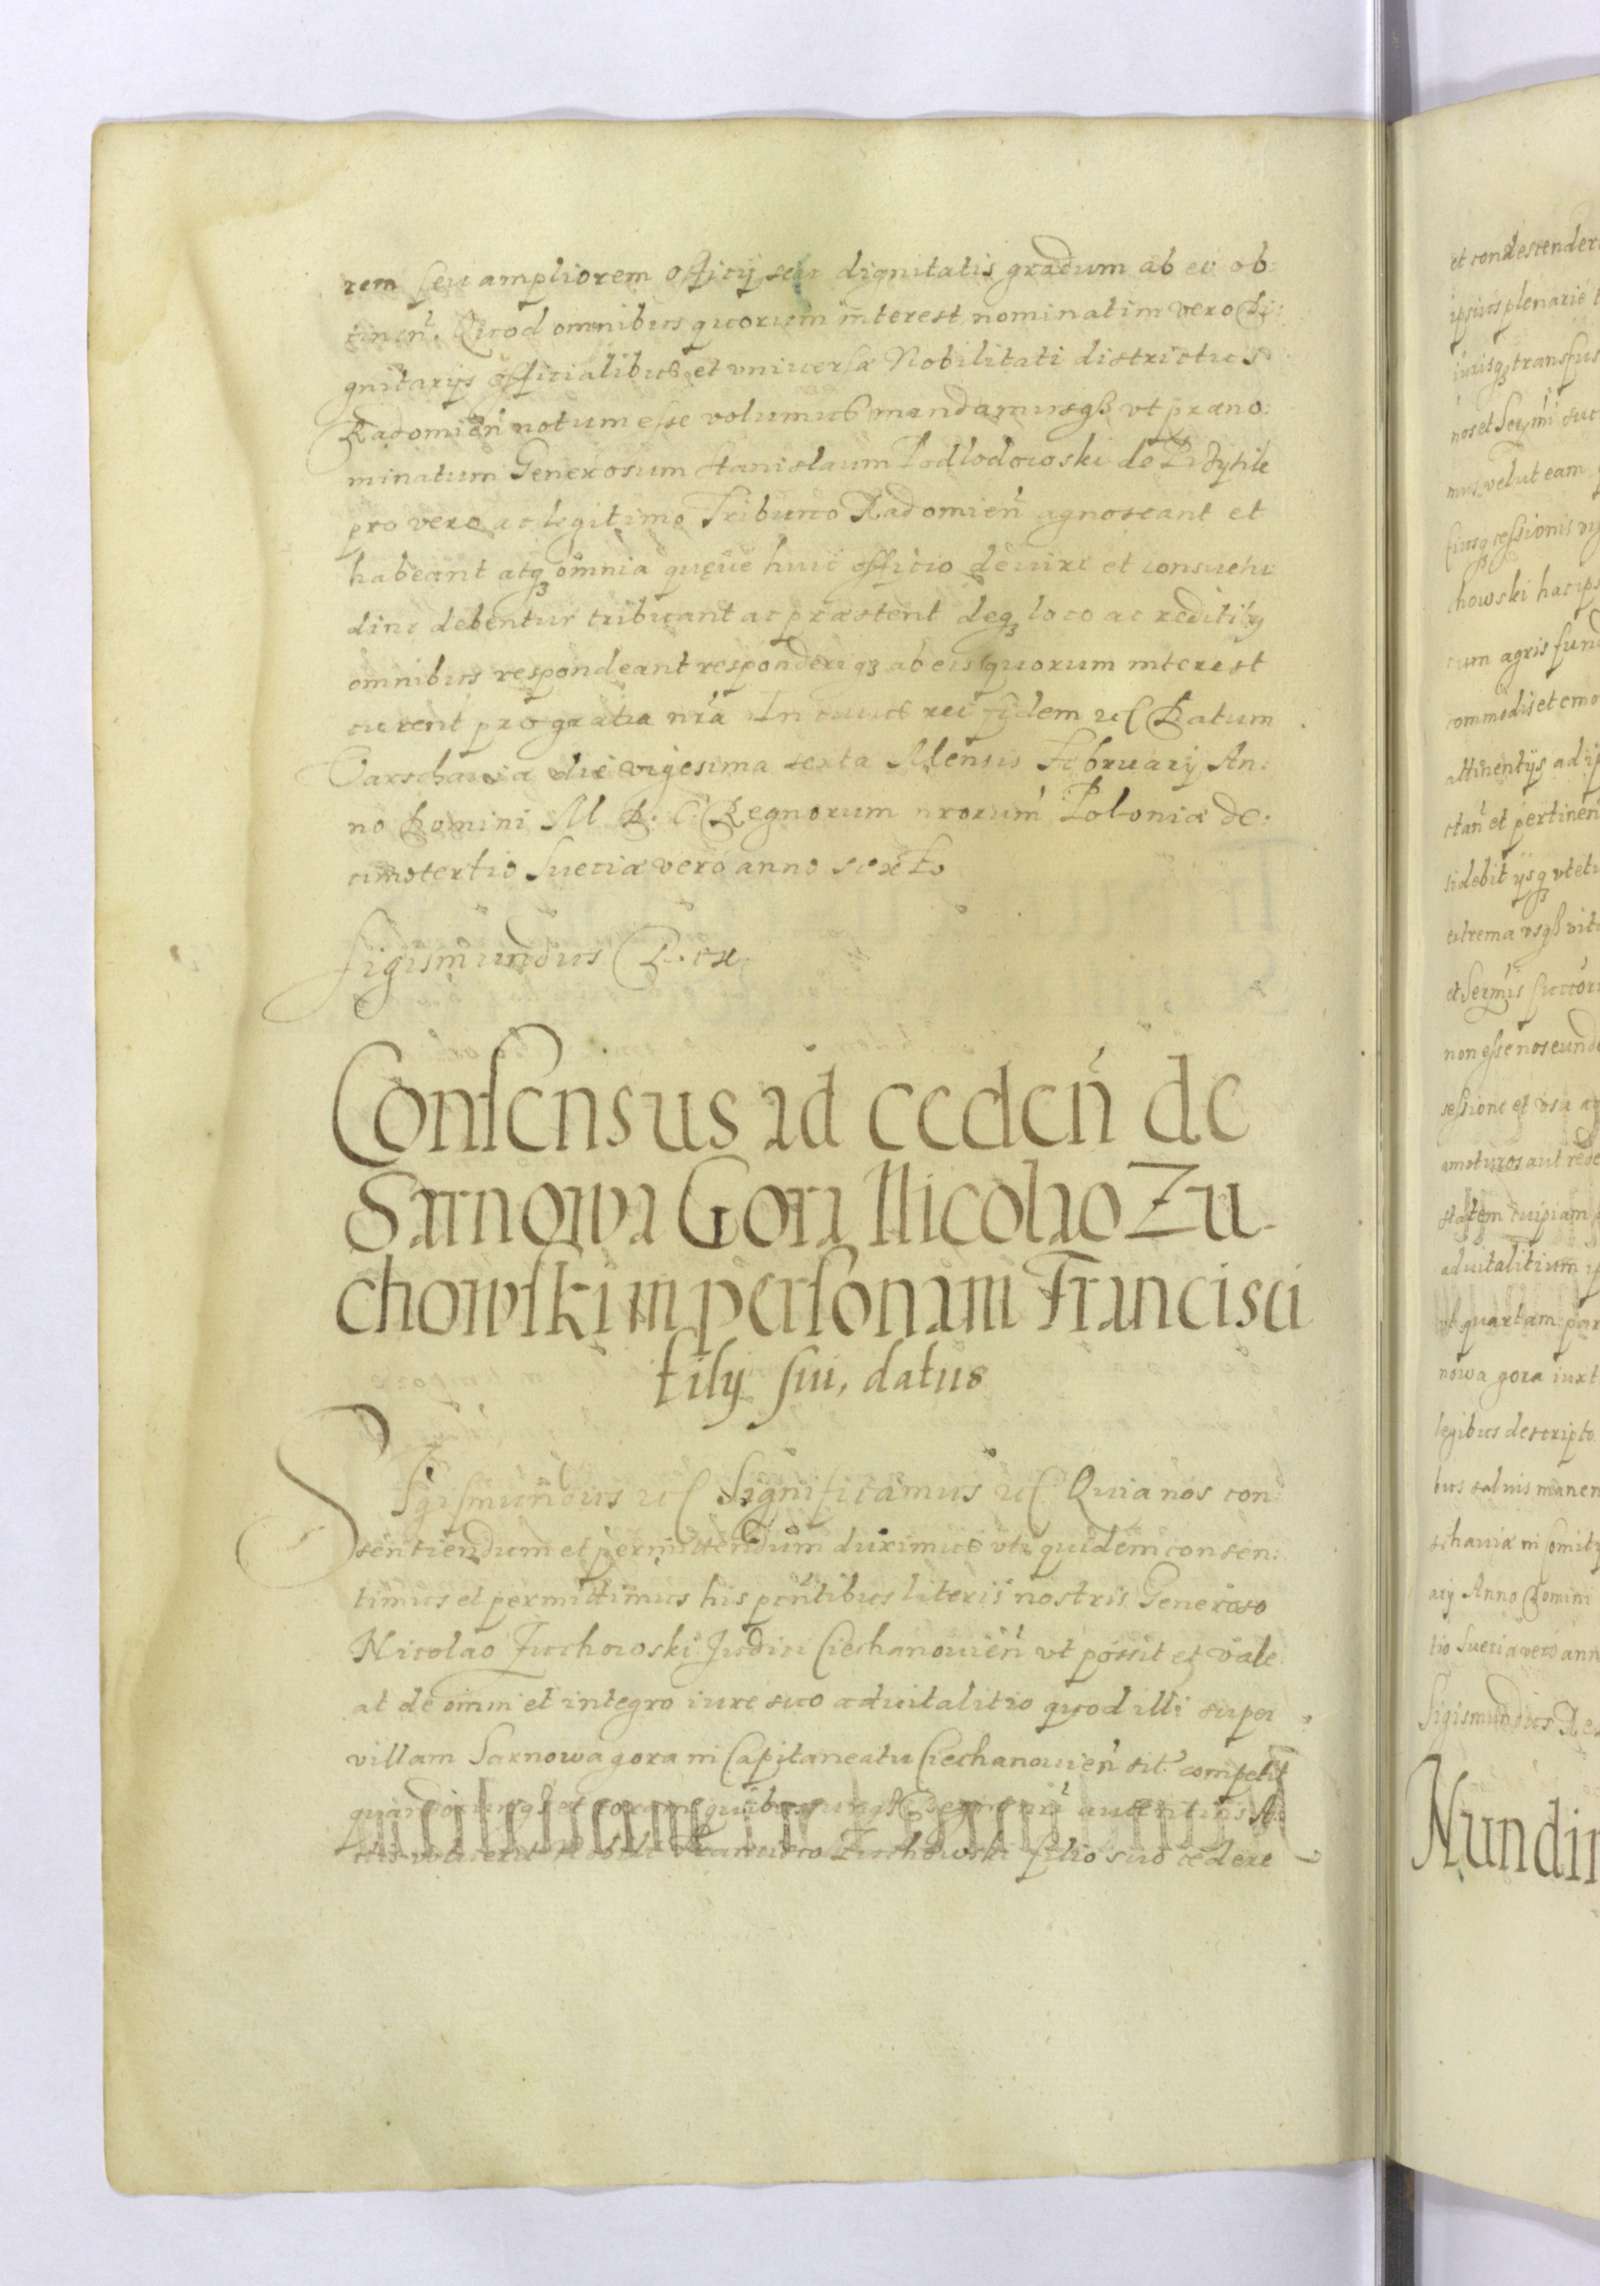 rem seu ampliorem officij seu dignitatis gradum ab eo ob:
tinen̄. Quod omnibus quorum interest nominatim vero Di:
gnitarijs officialibus et vniuersæ Nobilitati districtus
Radomien̄ notum esse volumus mandamusqß vt præno:
minatum Generosum Stanislaum Podlodowski de
pro vero ac legitimo Tribuno Radomien̄ agnoscant et
habeant atqꝫ omnia quęue huic officio de iure et consuetu
dine debentur tribuant ac præstent deqꝫ loco ac reditibꝫ
omnibus respondeant responderiqꝫ ab eis quorum interest
curent pro gratia nr̄a In cuius rei fidem ec Datum
Varschauiæ die vigesima sexta Mensis February An:
no Domini M. D. C. Regnorum nrorum̄ Poloniæ de:
cimotertio Sueciæ vero anno sexto
Sigismundus Rex.
Consensus ad ceden̄ de
Sarnowa Gora Nicolao Zu-
chowski in personam Francisci
filij sui, datus
Sigismundus ec Significamus ec Quia nos con:
sentiendum et permittendum duximus vti quidem consen:
timus et permittimus his pn̄tibus literis nostris Generoso
Nicolao Zuchowski Judici Ciechanouien̄ vt possit et vale
at de omni et integro iure suo aduitalitio quod illi super
villam Sarnowa gora in Capitaneatu Ciechanouien̄ sit. competit
quandocunqß et coram quibuscunqß Regni nr̄i autenticis A:
ctis voluerit Nobili Francisco Zuchowski filio suo cedere
et condescendere
ipsius plenarie
iurisqꝫ transfus
nos et Sermi̅ suc
mus, velut eam
huiusqꝫ cessionis vi
chowski hac ips
cum agris fund
commodis et emo
attinentijs ad ip
ctan̄ et pertinen̄
sidebit ijsqꝫ vtetu
extrema vsqß vitæ
et Serm̄is succōri
non esse nos eunde
sessione et vsu ag
amoturos aut rede
statem cuipiam
aduitalitium ip
vt quartam par
nowa gora iuxt
legibus descripto
bus saluis manen
schauiæ in Comity
arij Anno Domini
tio Sueciæ vero ann
Sigismundus Rex
Nundin